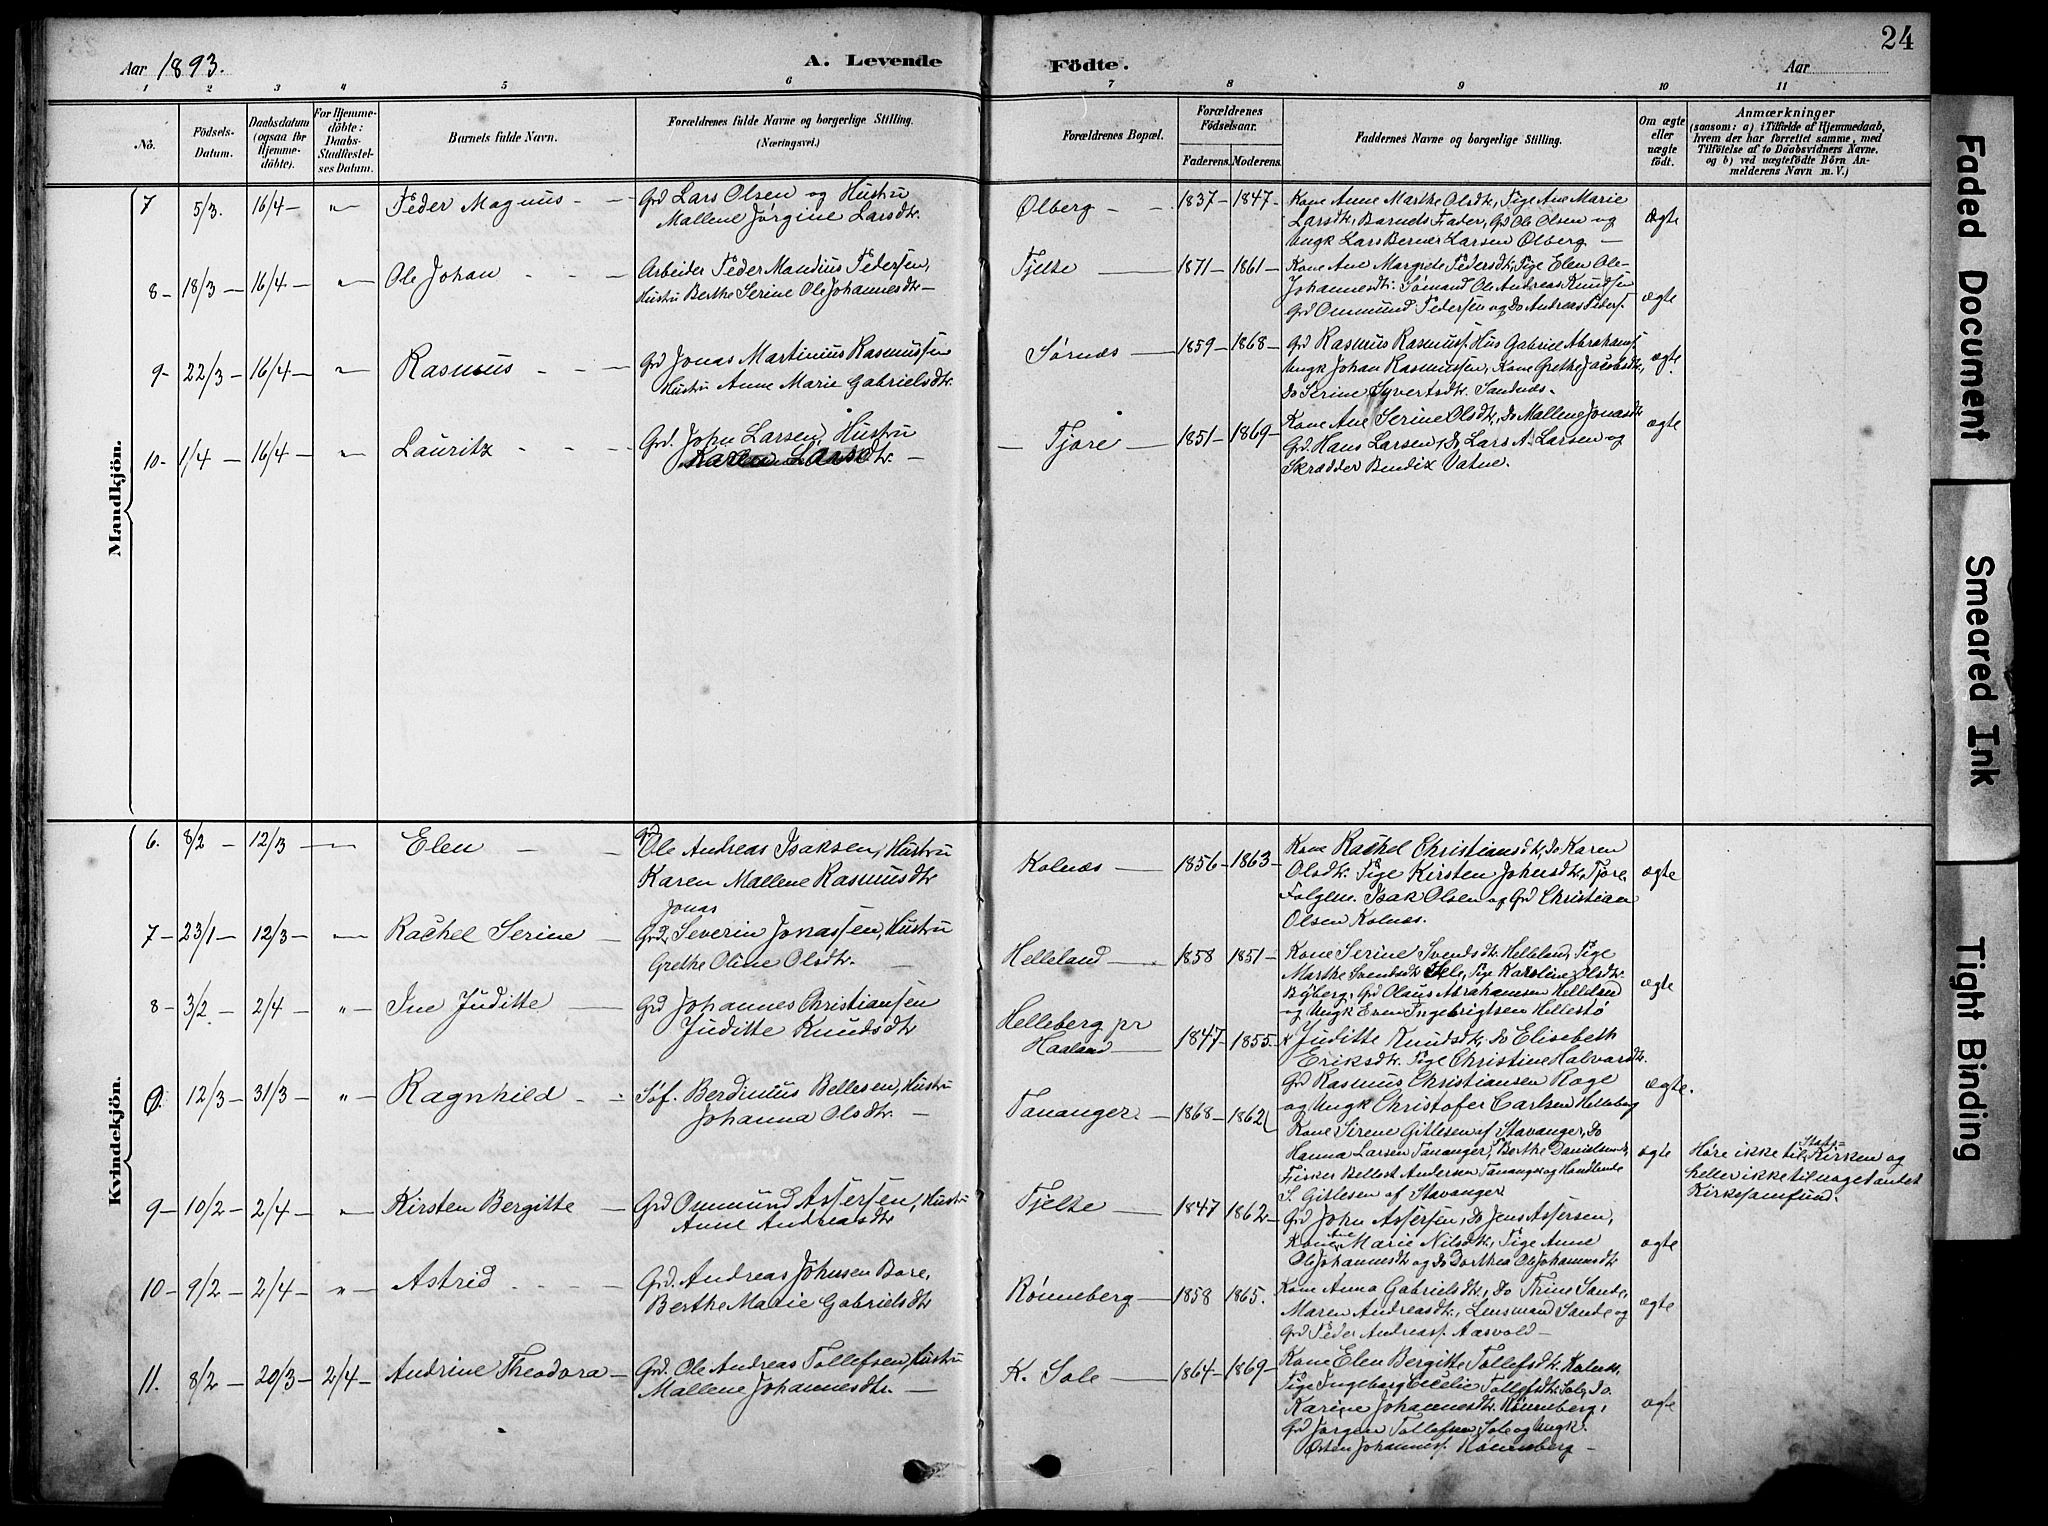 24
Aar 1893.
A. Levende Födte.
Aar
1 2 3 4 5 6 7 8 9 10 11
No.
Födsels-Datum.
Daabsdatum (ogsaa for Hjemmedöbte).
For Hjemmedöbte: Daabs-Stadfæstelses Datum.
Barnets fulde Navn.
Forældrenes fulde Navne og borgerlige Stilling. (Næringsvei.)
Forældrenes Bopæl.
Forældrenes Födselsaar.
Faderens. Moderens.
Faddernes Navne og borgerlige Stilling.
Om ægte eller uægte födt.
Anmærkninger
(saasom: a) i Tilfælde af Hjemmedaab,
hvem der har forrettet samme, med
Tilföielse af to Daabsvidners Navne.
og b) ved uægtefödte Börn An-
melderens Navn m. V.)
Mandkjön.
7 5/3. 16/4 — " — Peder Magnus — Grd Lars Olsen og Hustru
Mallene Jørgine Larsdtr.
Ølberg — 1837 - 1847 - Kone Anne Marthe Olsdtr, Pige Ane Marie
Larsdtr, Barnets Fader, Grd Ole Olsen og
Ungk Lars Berner Larsen Ølberg —
Ægte
8 - 18/3 — 16/4 — " — Ole Johan — Arbeider Peder Mandius Pedersen,
Hustru Berthe Serine Ole Johannesdtr —
Tjelse — 1871 - 1861 - Kone Ane Margrete Pedersdtr, Pige Elen Ole-
Johannesdtr. Sømand Ole Andreas Knudsen
Grd Ommund Pedersen og Do Andreas Peders.
ægte
9 - 22/3 — 16/4 — " — Rasmus — Grd Jonas Martinius Rasmussen
Hustru Anne Marie Gabrielsdtr.
Sørnæs — 1859 - 1868 - Grd Rasmus Rasmuss. Hus Gabriel Abrahams.
Ungk Johan Rasmussen, Kone Grethe Jacobsdtr,
Do Serine Syvertsdtr. Sandnæs.
ægte.
10 - 1/4 — 16/4 — " — Lauritz — Grd. John Larsen, Hustru
Karen Larsdtr. —
Tjore — 1851 - 1869 - Kone Ane Serine Olsdtr, Do Mallene Jonasdtr
Grd Hans Larsen, Do Lars A. Larsen og
Skrædder Bendix Vatne.
ægte
Kvindekjön.
6. 8/2 — 12/3 — " — Elen — Grd Ole Andreas Isaksen, Hustru
Karen Mallene Rasmusdtr
Kolnæs — 1856 - 1863 - Kone Rachel Christiansdtr, Do Karen
Olsdtr. Pige Kirsten Johnsdtr, Tjore,
Folgem. Isak Olsen og Grd Christian
Olsen Kolnæs.
ægte
7 - 23/1 — 12/3 — " — Rachel Serine — Grd. Jonas Severin Jonassen, Hustru
Grethe Oline Olsdtr. —
Helleland — 1858 1851 - Kone Serine Svendsdtr. Helleland, Pige
Marthe Svendsdtr, Pige Karoline Olsdtr.
Byberg, Grd Olaus Abrahamsen Helleland
og Ungk Even Ingebrigtsen Hellestø
ægte
8 - 3/2. — 2/4 — " — Ine Juditte — Grd Johannes Christiansen
Juditte Knudsdtr
Helleberg pr
Haaland — 1847 - 1855. K Juditte Knudsdtr. Do Elisebeth
Eriksdtr. Pige Christine Halvarsdtr.
Grd Rasmus Christiansen Roge
og Ungk Christofer Carlsen Helleberg
ægte.
0. 12/3 — 31/3 — " — Ragnhild — Søf. Berdinius Bellesen, Hustru
Johanna Olsdtr. —
Tananger — 1868 - 1862 Kone Sirene Gitlesen af Stavanger, Do
Hanna Larsen Tananger, Berthe Danielsendtr
Fisker Bellest Andersen Tananger og Handlende
S. Gitlesen af Stavanger
ægte
Høre ikke til Stats-Kirken og
heller ikke til noget andet
Kirkesamfund.
9 - 10/2 — 2/4 — " — Kirsten Bergitte — Grd Ommund Assersen, Hustru
Anne Andreasdtr
Tjelse — 1847 1862 - Grd John Assersen, Do Jens Assersen,
Kone Ane Marie Nilsdtr, Pige Anne
Ole Johannesdtr og Do Dorthea Ole Johannesdtr
ægte
10 - 9/2 — 2/4 — " — Astrid — Grd. Andreas Johnsen Bore,
Berthe Marie Gabrielsdtr
Rønneberg — 1858 1865. Kone Anna Gabrielsdtr, Do Thine Sande,
Maren Andreasdtr, Lensmand Sande og
Grd Peder Andreass. Aasvold —
ægte
11. 8/2 — 20/3 — 2/4 — Andrine Theodora — Grd. Ole Andreas Tollefsen, Hustru
Mallene Johannesdtr. —
K. Sole — 1864 - 1869 - Kone Elen Bergitte Tollefsdtr. Kolnæs,
Pige Ingeborg Cecilie Tollefsdtr Sole, Do.
Karine Johannesdtr. Rønneberg,
Grd Jørgen Tollefsen, Sole og Ungk.
Østen Johannes. Rønneberg —
ægte
Faded Document
Smeared Ink
Tight Binding